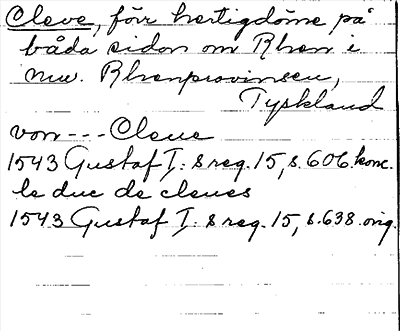 Cleve, förr hertigdöme på
båda sidor om Rhen i
nuv. Rhenprovinsen,
Tyskland
von --- Cleue
1543 Gustaf I: s reg. 15, s. 606 konc.
le duc de cleues
1543 Gustaf I: s reg. 15, s. 638. orig.